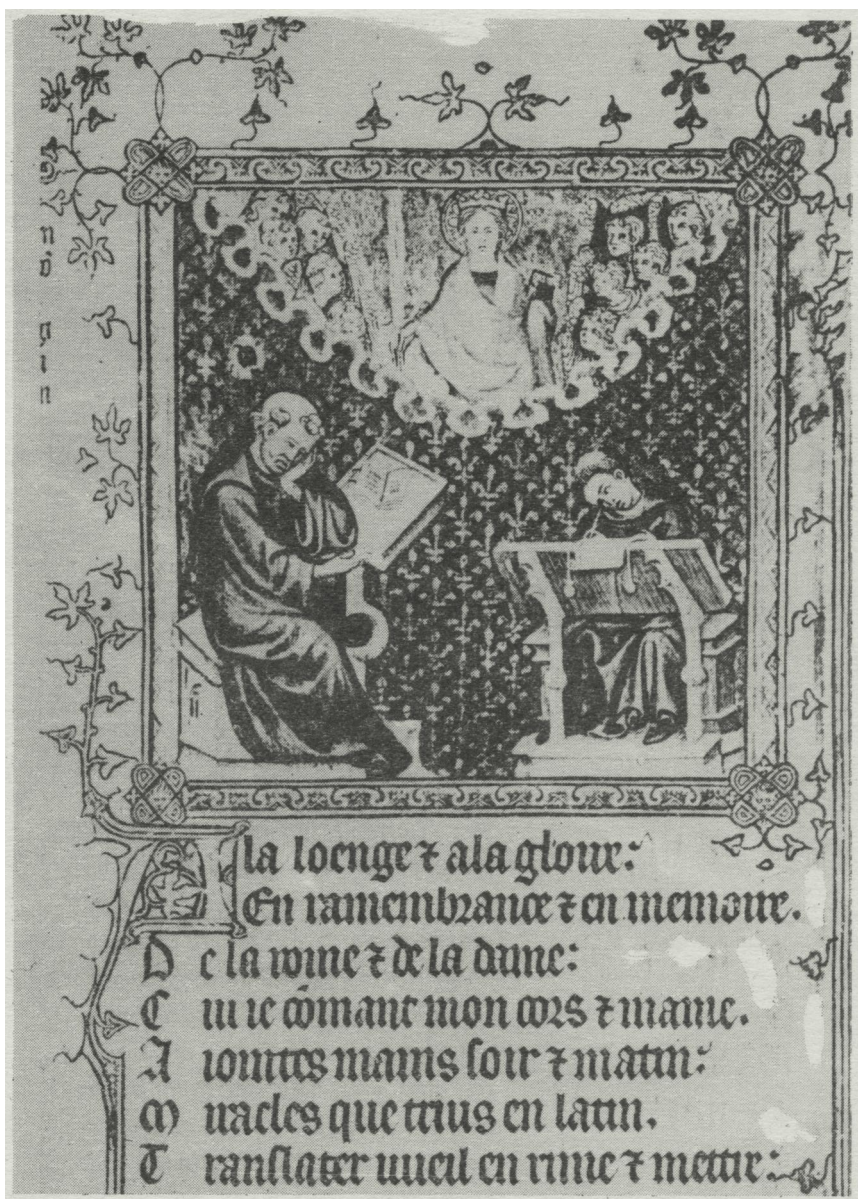 A la loenge ⁊ a la gloire:
En ramembrance ⁊ en memoire.
De la roine ⁊ de la dame:
Cui ie cõmant mon cors ⁊ mame.
A iointes mains soir ⁊ matin:
Miracles que truis en latin.
Translater vueil en rime ⁊ mettre: